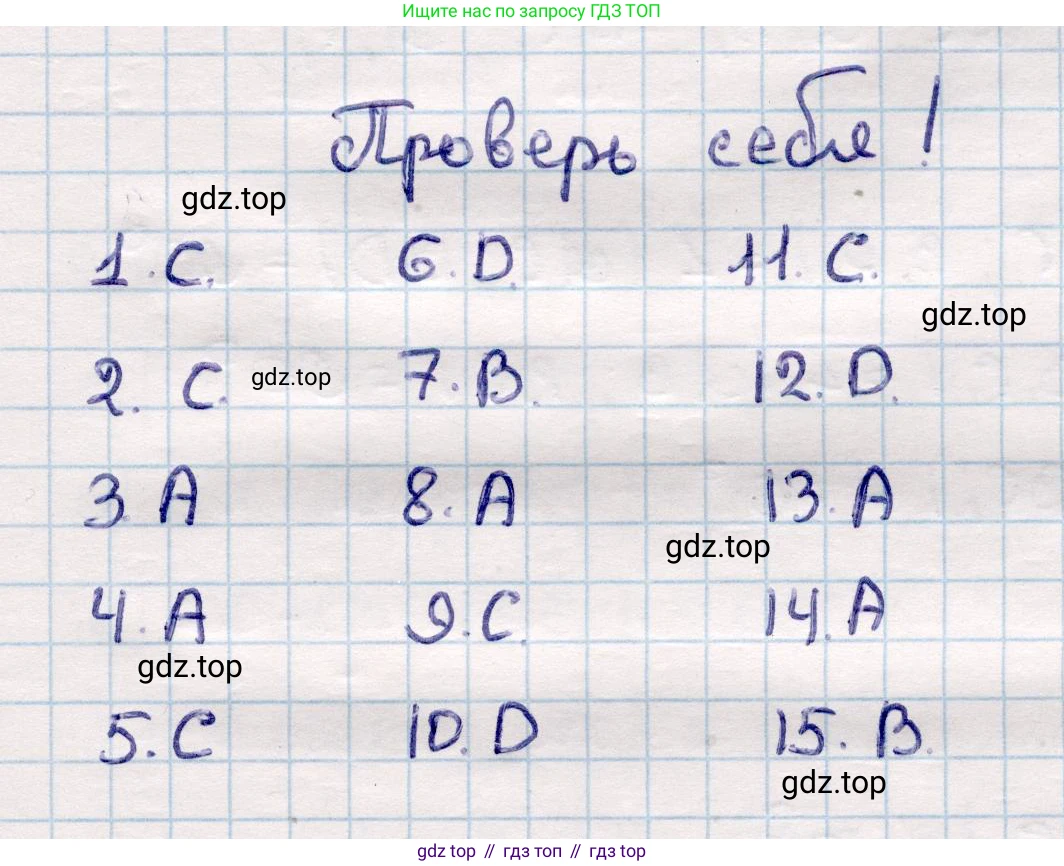 Ищите нас по запросу ГДЗ ТОП
Проверь себя!
gdz.top
1. C. 6. D. 11. C.
gdz.top
2. C. gdz.top 7. B. 12. D.
3. A 8. A 13. A
gdz.top
4. A 9. C. 14. A
gdz.top
5. C 10. D 15. B.
gdz.top
gdz top // гдз топ // gdz top